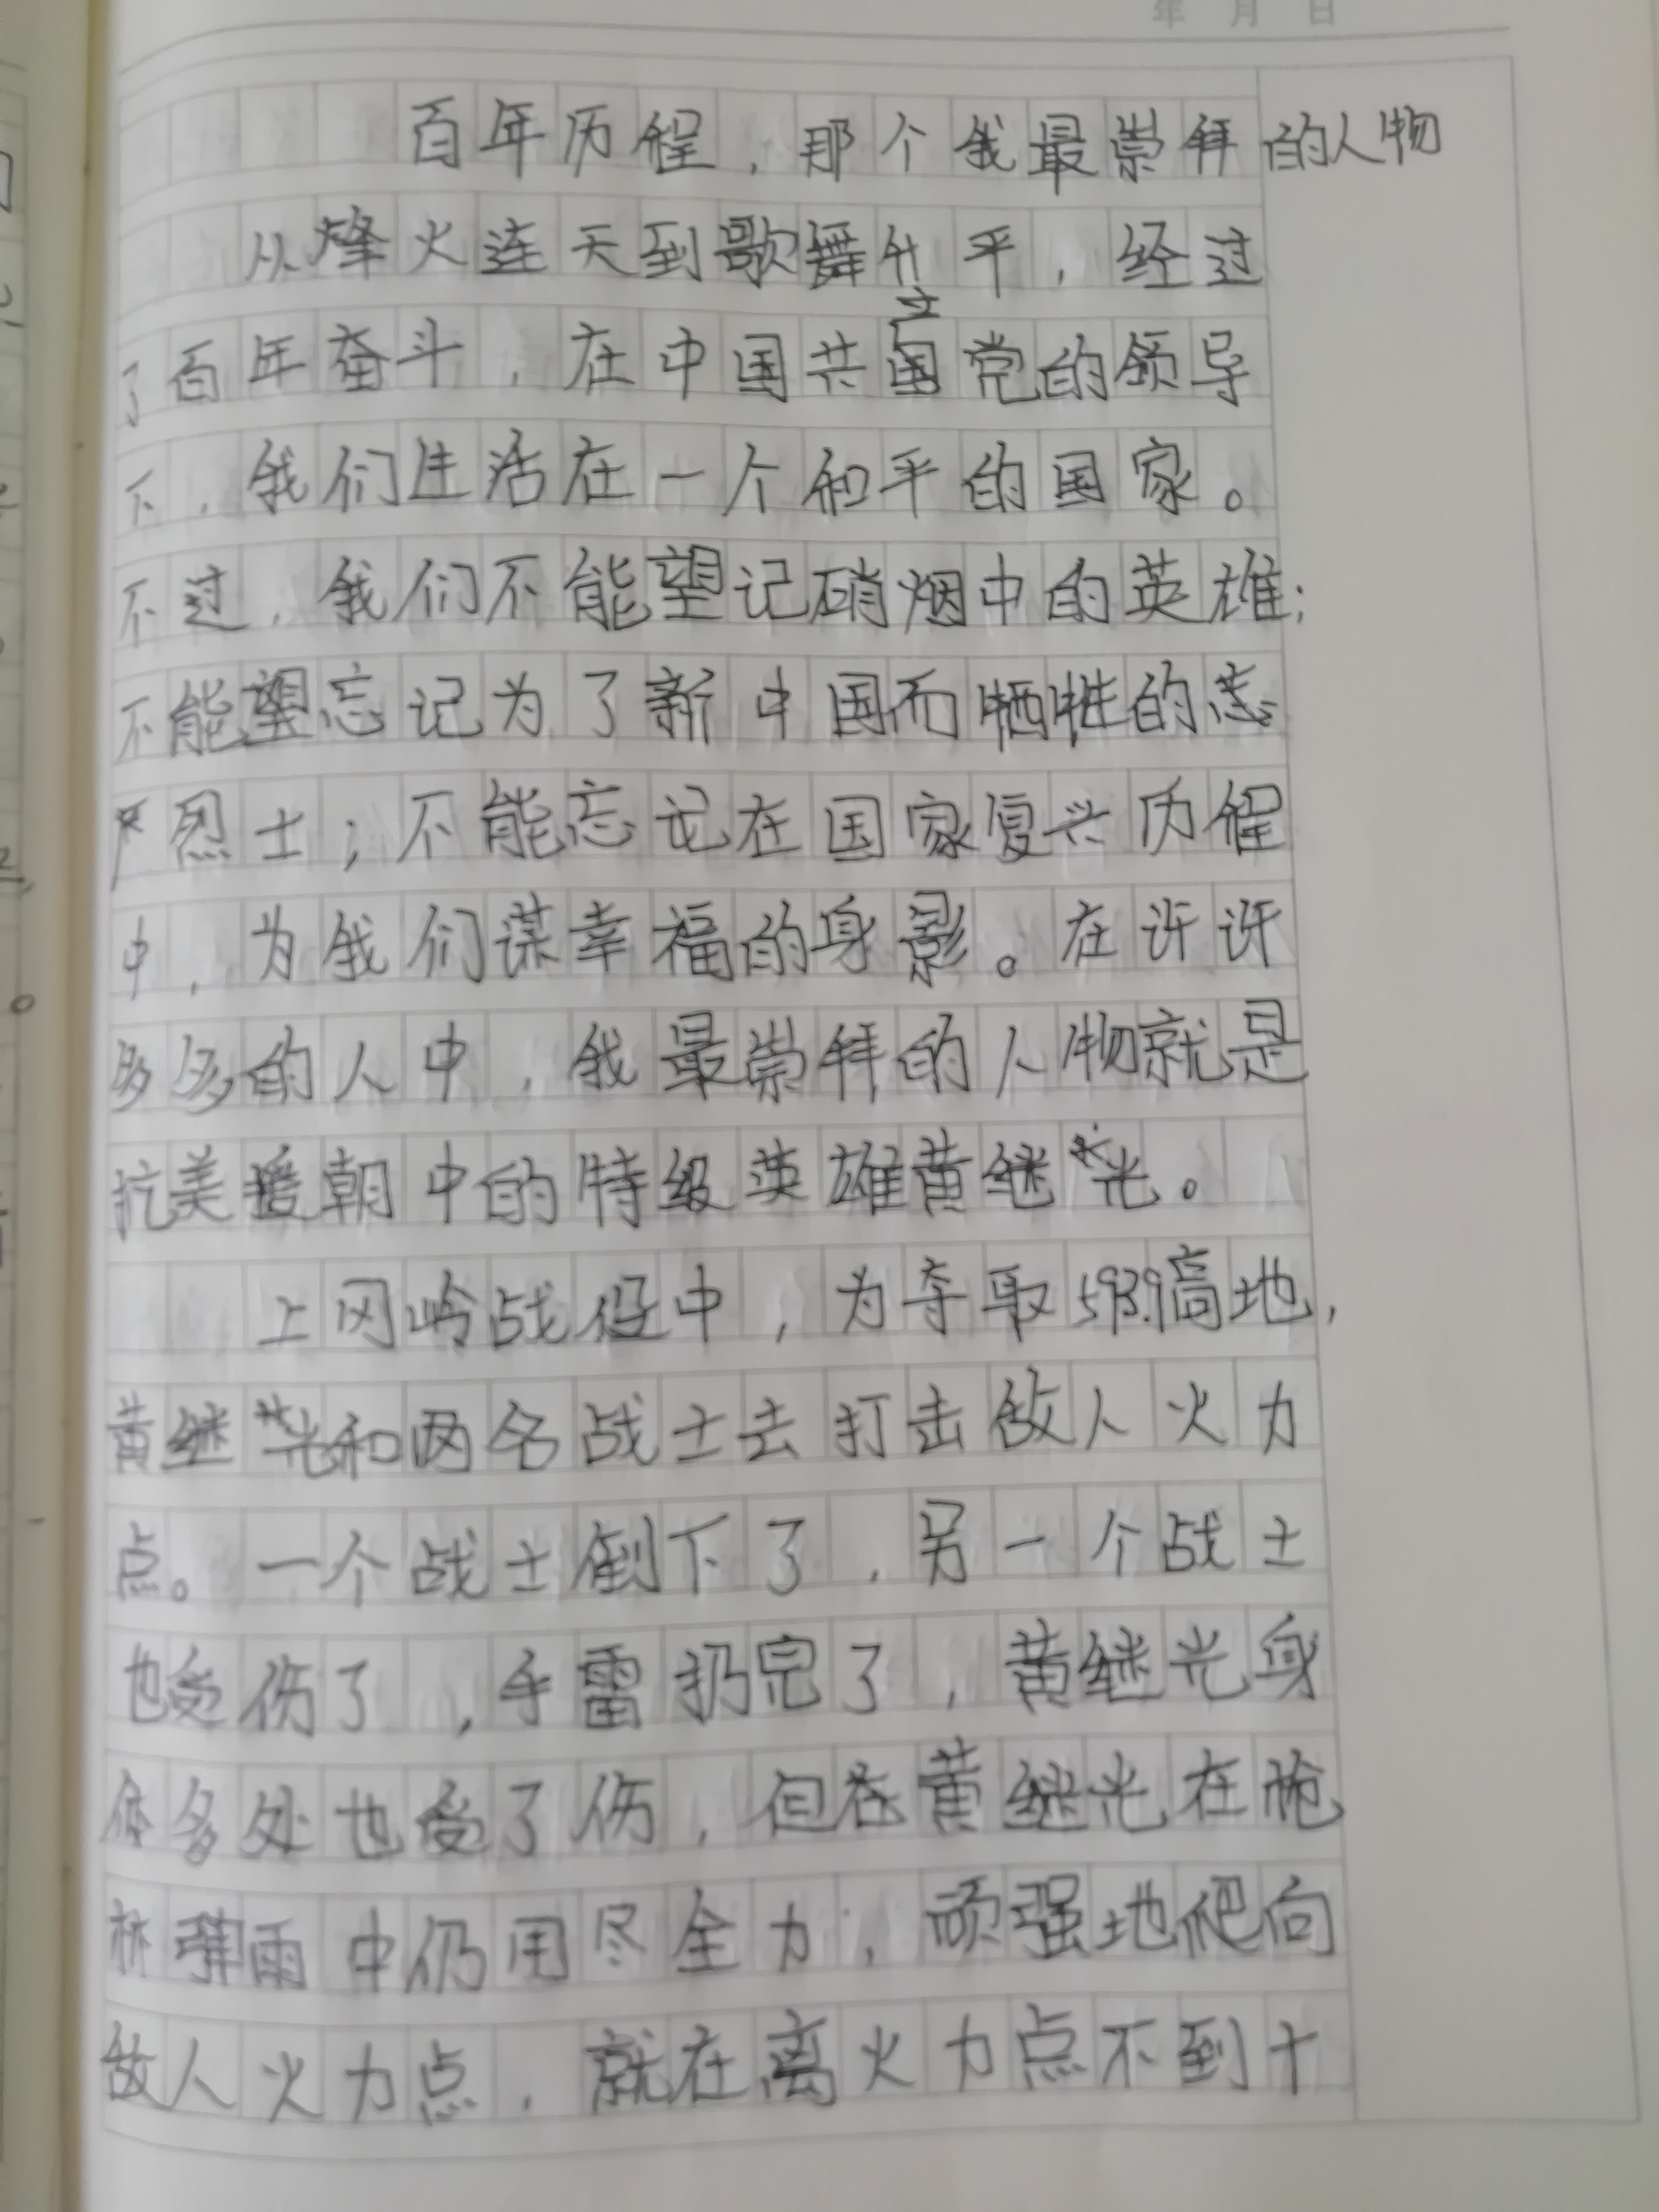 年 月 日
百年历程，那个我最崇拜的人物
从烽火连天到歌舞升平，经过
了百年奋斗，在中国共产党的领导
下，我们生活在一个和平的国家。
不过，我们不能望记硝烟中的英雄；
不能望忘记为了新中国而牺牲的
烈士；不能忘记在国家复兴历程
中，为我们谋幸福的身影。在许许
多多的人中，我最崇拜的人物就是
抗美援朝中的特级英雄黄继光。
上冈岭战役中，为夺取593.9高地，
黄继光和两名战士去打击敌人火力
点。一个战士倒下了，另一个战士
也受伤了，手雷扔完了，黄继光身
体多处也受了伤，但在黄继光在枪
林弹雨中仍用尽全力，顽强地爬向
敌人火力点，就在离火力点不到十